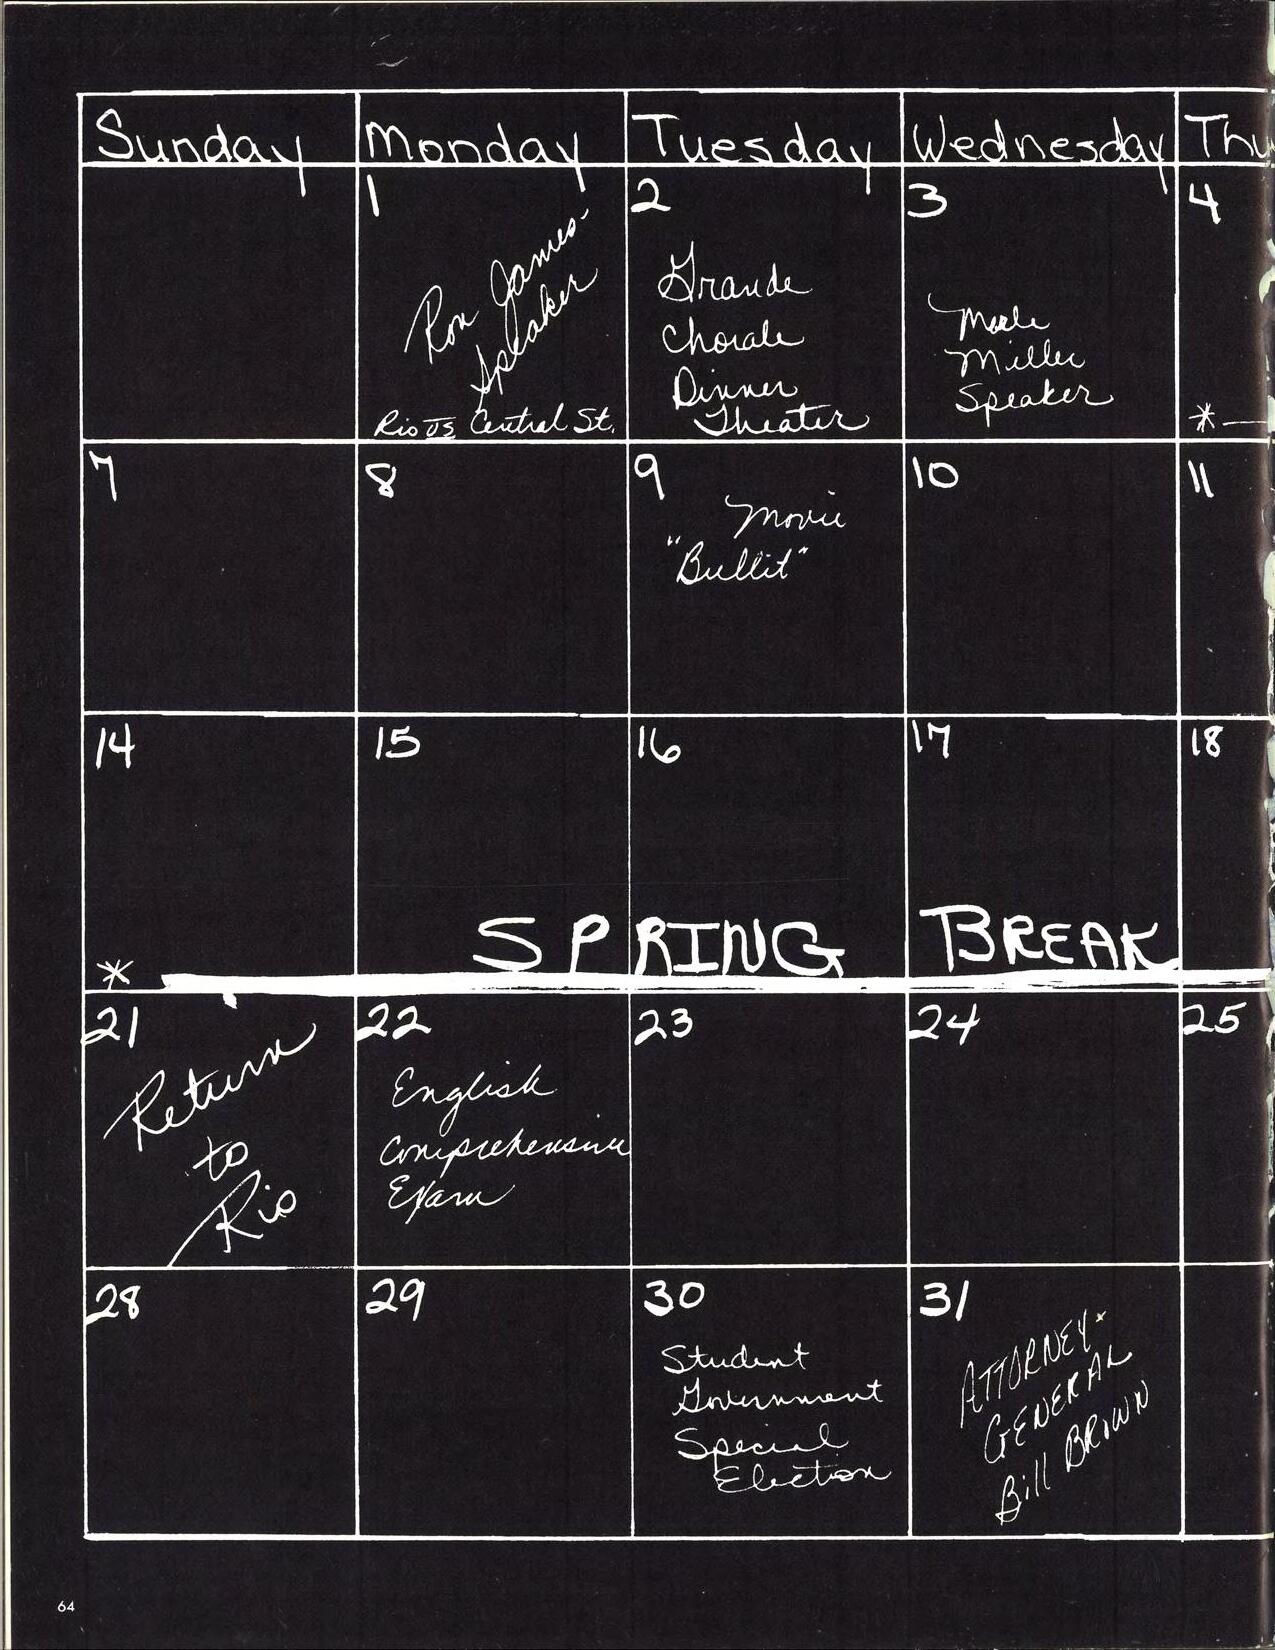 Sunday Monday Tuesday Wednesday Thu
1 2 3 4
Ron James-
Speaker
Rio vs Central St.
Grande
Chorale
Dinner
Theater
Merle
Miller
Speaker
*
7 8 9 10 11
Movie
"Bullit"
14 15 16 17 18
* SPRING BREAK
21 22 23 24 25
Return
to
Rio
English
Comprehensive
Exam
28 29 30 31
Student
Government
Special
Election
ATTORNEY-
GENERAL
Bill BROWN
64